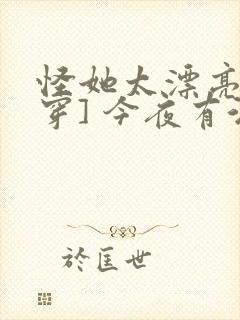 怪她太漂亮
穿] 今夜有
於匡世